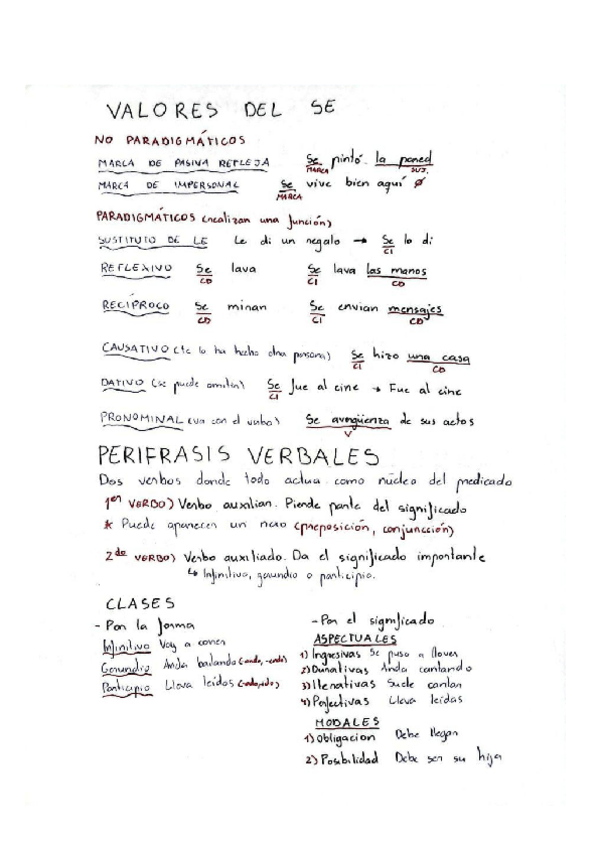 VALORES DEL SE
NO PARADIGMÁTICOS
MARCA DE PASIVA REFLEJA Se pintó la pared
MARCA SUJ.
MARCA DE IMPERSONAL Se vive bien aquí Ø
MARCA
PARADIGMÁTICOS (realizan una función)
SUSTITUTO DE LE Le di un regalo → Se lo di
CI
REFLEXIVO Se lava Se lava las manos
CD CI CD
RECÍPROCO Se miran Se envían mensajes
CD CI CD
CAUSATIVO (te lo ha hecho otra persona) Se hizo una casa
CI CD
DATIVO (se puede omitir) Se fue al cine → Fue al cine
CI
PRONOMINAL (va con el verbo) Se avergüenza de sus actos
V
PERIFRASIS VERBALES
Dos verbos donde todo actua como núcleo del predicado
1er VERBO) Verbo auxiliar. Pierde parte del significado
* Puede aparecer un nexo (preposición, conjunción)
2do VERBO) Verbo auxiliado. Da el significado importante
↳ Infinitivo, gerundio o participio.
CLASES
- Por la forma
Infinitivo Voy a comer
Gerundio Anda bailando (-ando, -endo)
Participio Lleva leídos (-ado, -ido)
- Por el significado
ASPECTUALES
1) Ingresivas Se puso a llover
2) Durativas Anda cantando
3) Iterativas Suele cantar
4) Perfectivas Lleva leídas
MODALES
1) Obligacion Debe llegar
2) Posibilidad Debe ser su hija